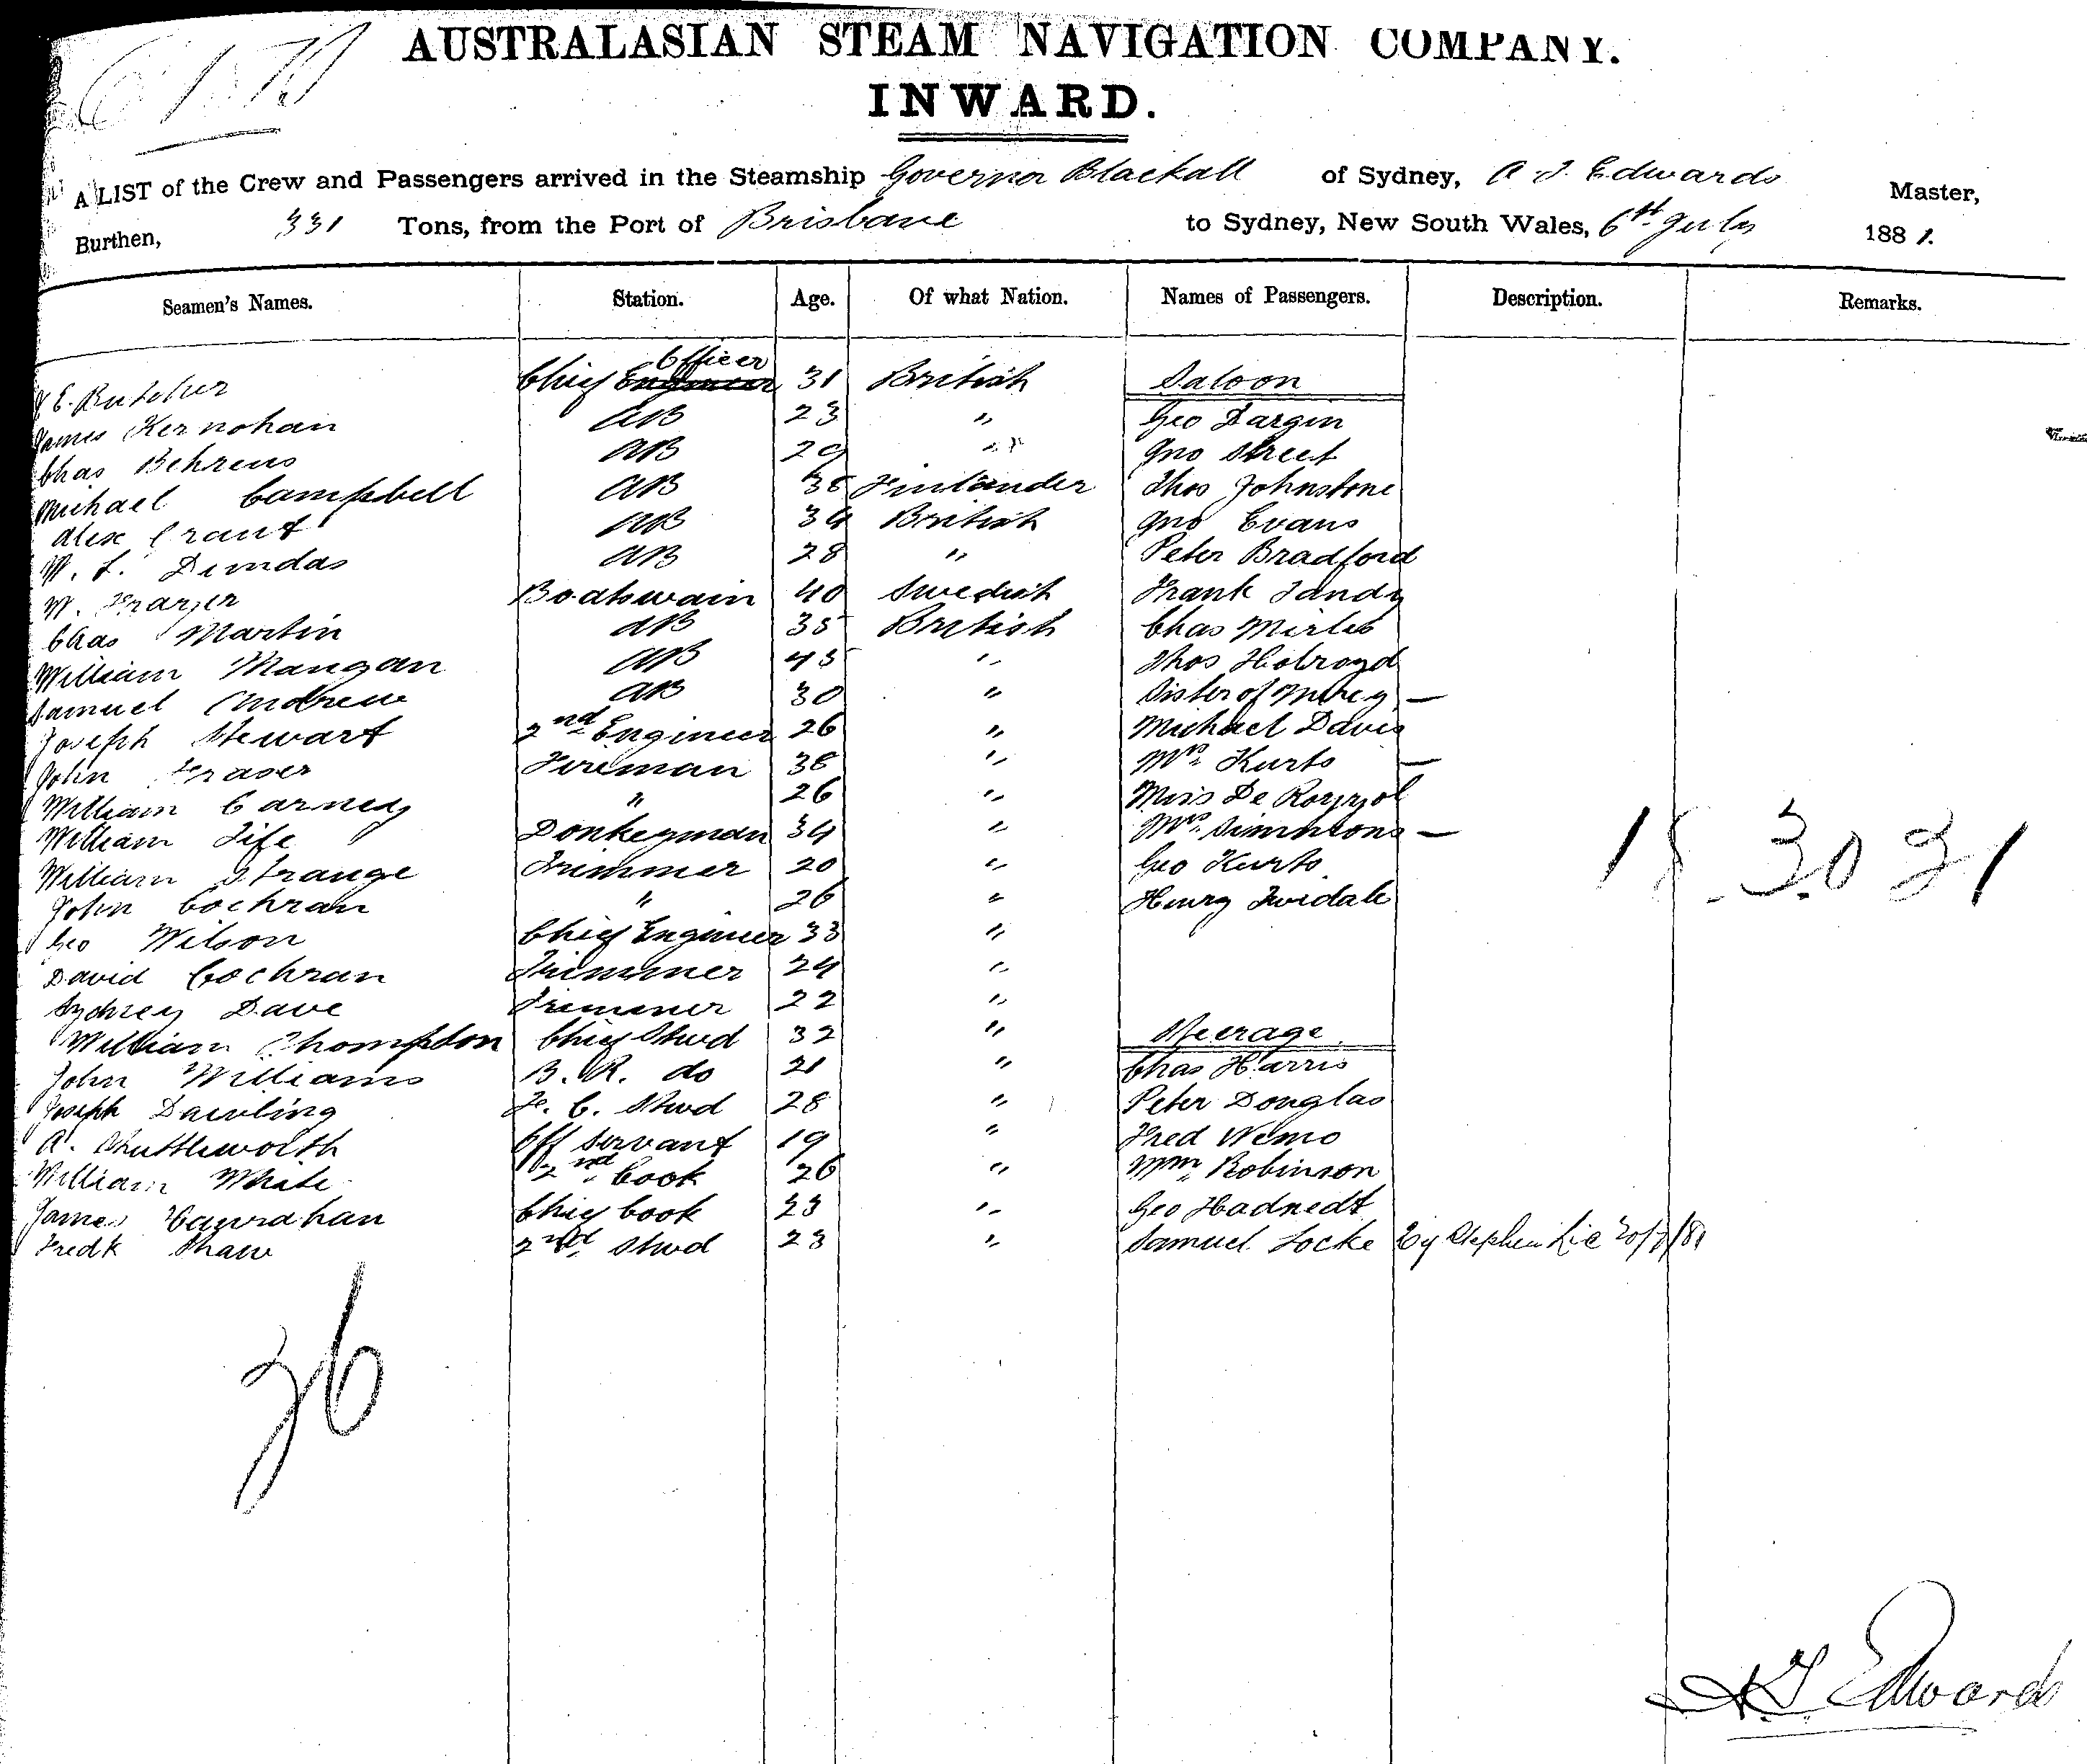 AUSTRALASIAN STEAM NAVIGATION COMPANY.
INWARD.
A LIST of the Crew and Passengers arrived in the Steamship Governor Blackall of Sydney, A J. Edwards Master,
Burthen, 331 Tons, from the Port of Brisbane to Sydney, New South Wales, 6th July 1881.
Seamen's Names. Station. Age. Of what Nation. Names of Passengers. Description. Remarks.
E. Butcher Chief Engineer Officer 31 British Saloon
James Kernohan AB 23 " Geo Dargin
Chas Behrens AB 29 " Jno Street
Michael Campbell AB 35 Finlander Thos Johnstone
Alex Grant AB 34 British Jno Evans
W. L. Dundas AB 28 " Peter Bradford
W. Frazer Boatswain 40 Swedish Frank Tandy
Chas Martin AB 35 British Chas
William Mangan AB 45 " Thos Holroyd
Samuel Andrew AB 30 " Sister of Mercy —
Joseph Stewart 2nd Engineer 26 " Michael Davis
John Fraser Fireman 36 " Mrs. Kurts —
William Carney " 26 " Miss De
William Fife Donkeyman 34 " Mrs. Simmtons —
William Strange Trimmer 20 " Geo Kurts
John Cochran " 26 " Henry Twidale
Geo Wilson Chief Engineer 33 "
David Cochran Trimmer 24 "
Sydney Dave Trimmer 22 "
William Thompson Chief Stwd 32 " Steerage
John Williams B. R. do 21 " Chas Harris
Joseph Dawling F. C. Stwd 28 " Peter Douglas
A. Shuttleworth Off Servant 19 " Fred Wemo
William White 2nd Cook 26 " Wm. Robinson
James Chief Cook 23 " Geo Hadnedt
Fredk Shaw 2nd Stwd 23 " Samuel Locke By Stephen
26
A J Edwards